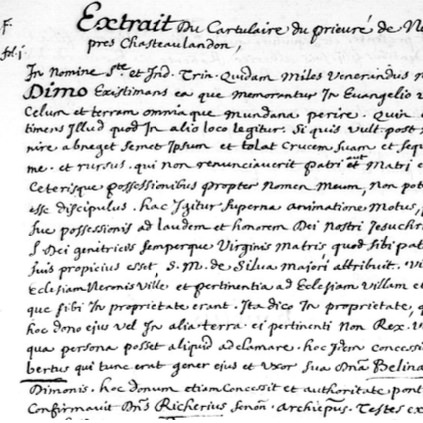 F. Extrait Du Cartulaire du prieuré de N
fol. j. pres Chasteaulandon,
In Nomine Ste et Ind. Trin. Quidam Miles Venerandus n
Dimo Existimans ea que memorantur In Evangelio v
Celum et terram omnia que mundana perire. Quin
timens Illud quod In alio loco legitur. Si quis vult post
nire abneget semet Ipsum et tolat Crucem suam et sequ
me. et rursus. qui non renunciaverit Patri aut Matri e
Ceterisque possessionibus propter Nomen Meum, Non pot
esse discipulus. hac Igitur superna animatione Motus,
sue possessionis ad laudem et honorem Dei Nostri Jesuchri
S Dei genitricis semperque Virginis Matris quod sibi pat
suis propicius esset, S. M. de Silva Majori attribuit. Vi
Eclesiam Neronis Ville et pertinentia ad Eclesiam Villam e
que sibi In proprietate erant. Ita dico In proprietate, q
hoc dono ejus vel In alia terra ei pertinenti Non Rex. V
qua persona posset aliquid adclamare. hoc Idem concess
bertus qui tunc erat gener ejus et Uxor sua Dna Belina
Dimonis. hoc donum etiam Concessit et authoritate pont
Confirmavit Dns Richerius senon. archiepus. Testes ex